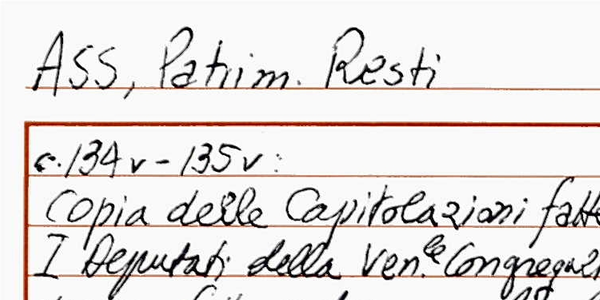 ASS, Patrim. Resti
c. 134v - 135v:
Copia delle Capitolazioni fatte
I Deputati della Ven.le Congregaz